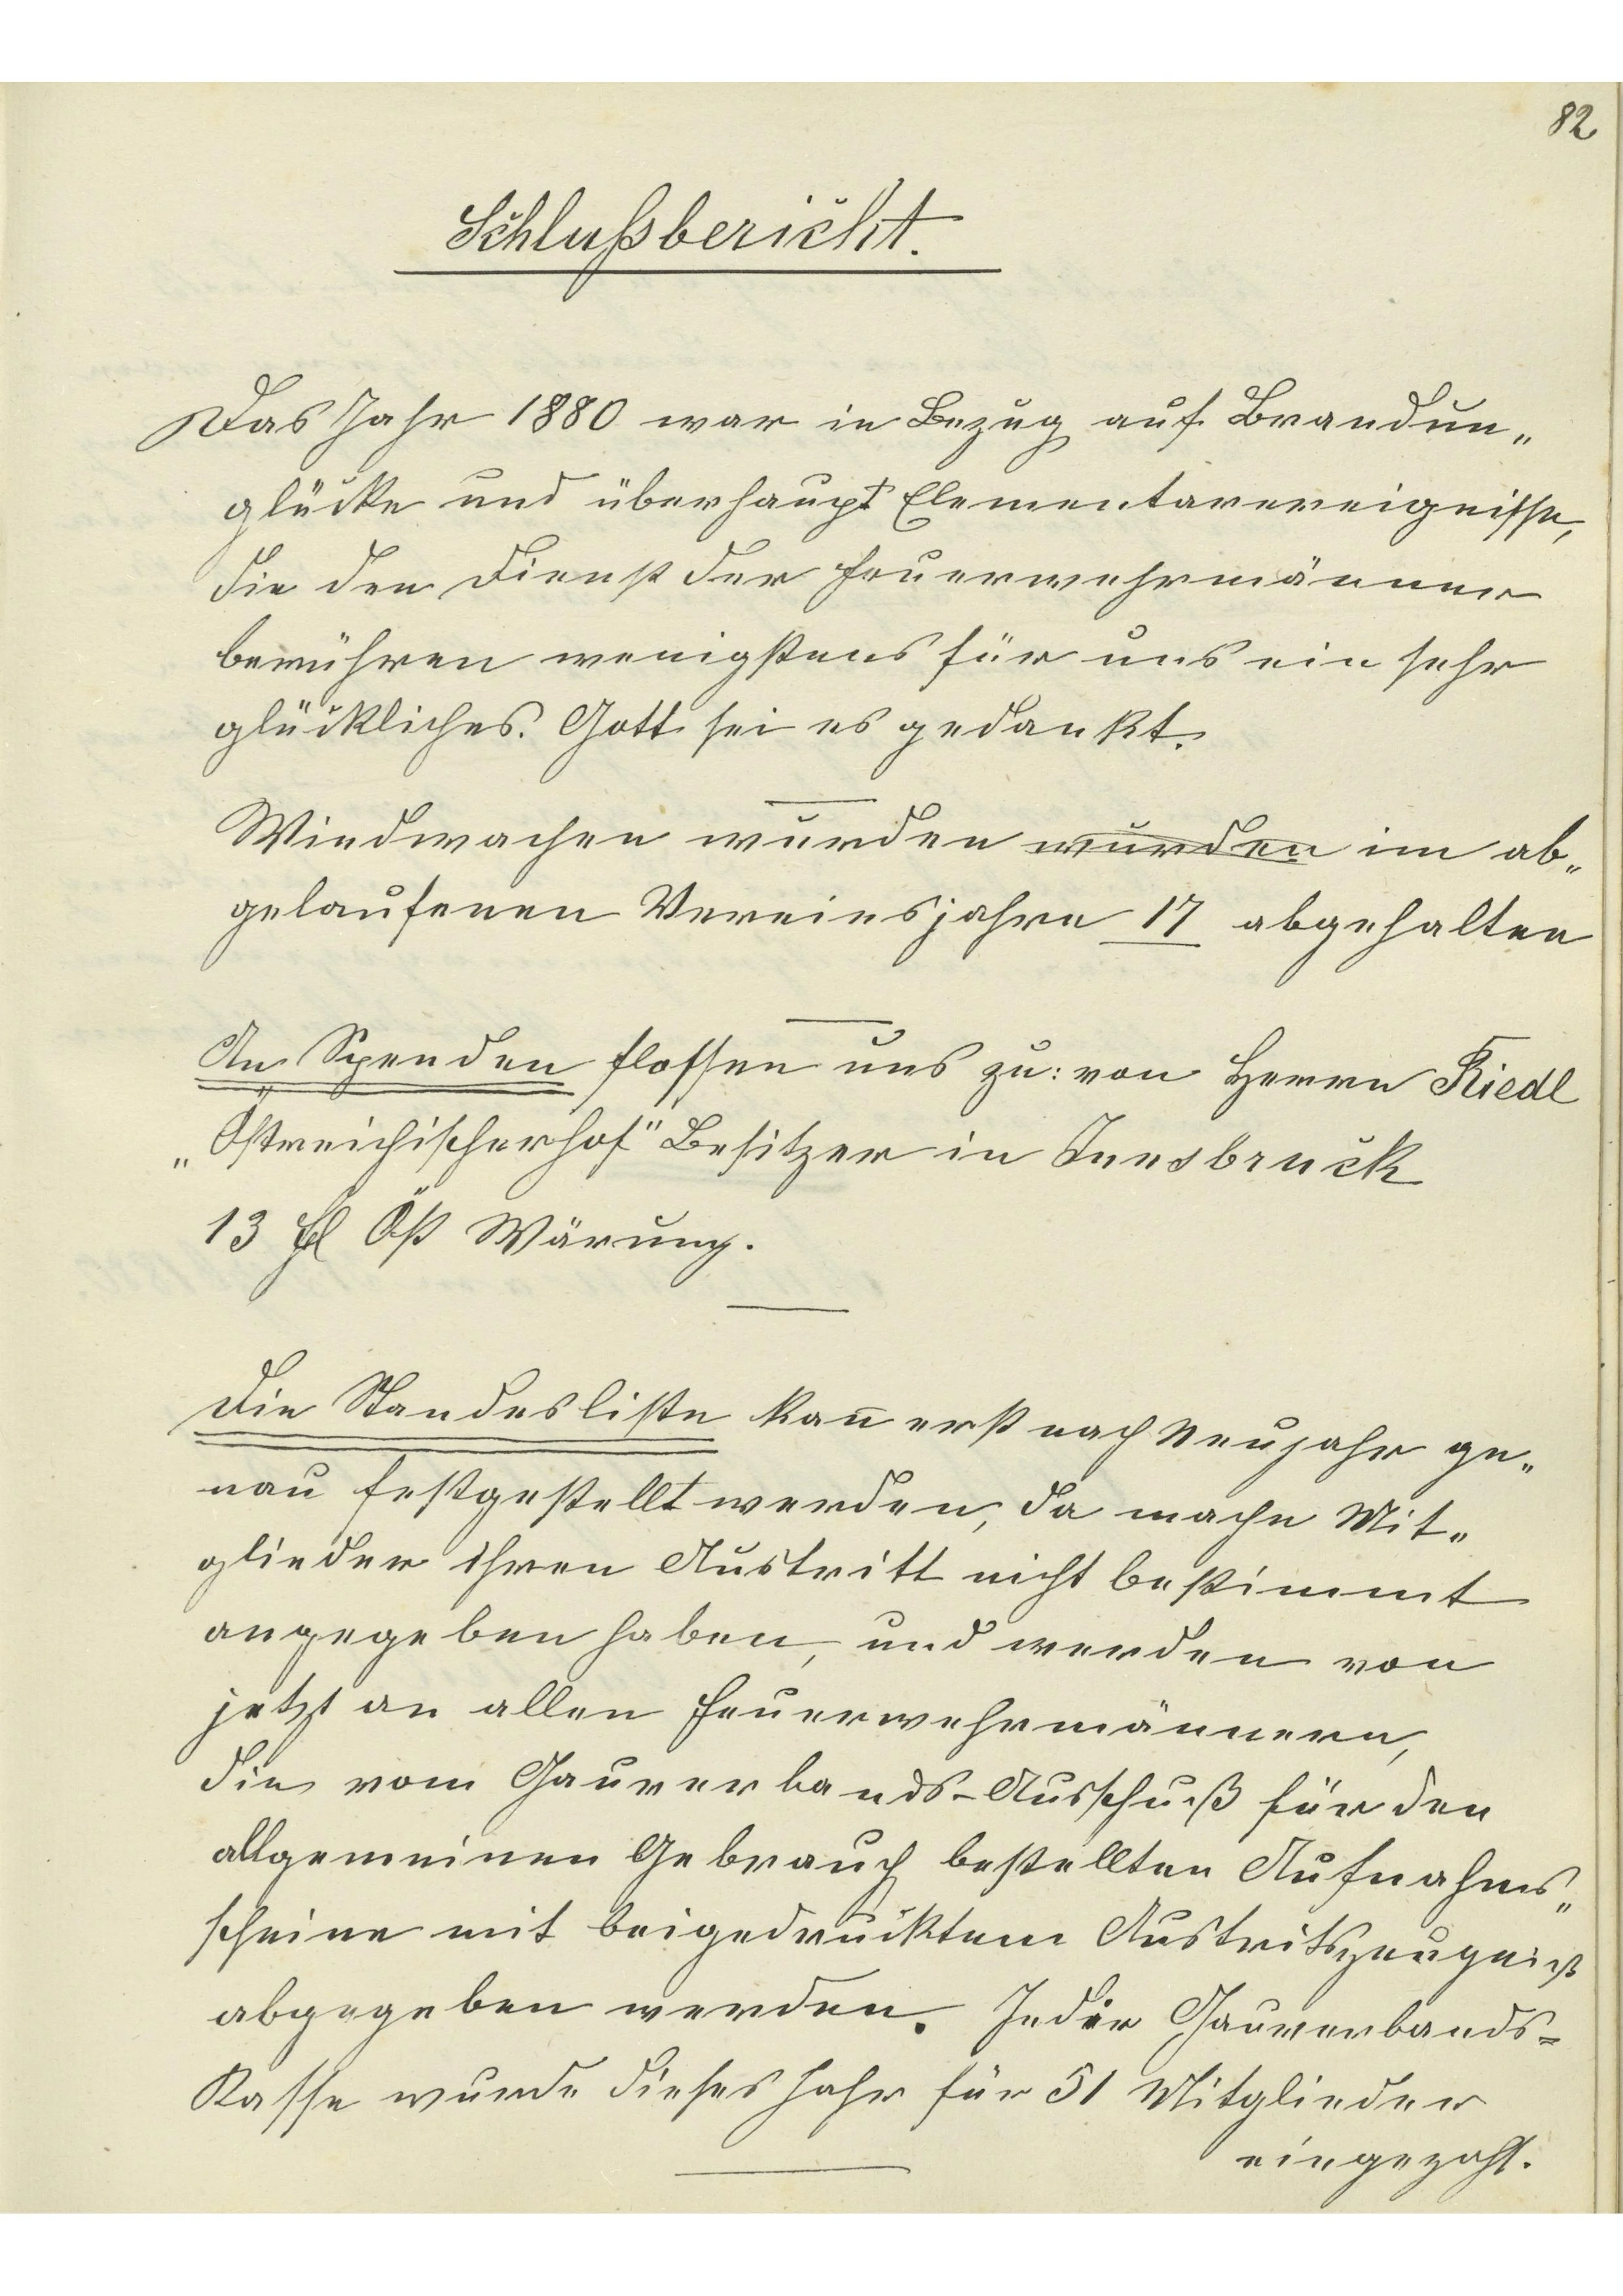 82
Schlußbericht.
Das Jahr 1880 war in Bezug auf Brandun„
glücke und überhaupt Elementarereignisse,
die den Dienst der Feuerwehrmänner
berühren wenigstens für uns ein sehr
glückliches. Gott sei es gedankt.
Windwachen wurden wurden im ab„
gelaufenen Vereinsjahre 17 abgehalten
An Spenden flossen uns zu: von Herrn Riedl
„Östreichischerhof" Besitzer in Innsbruck
13 fl Öst Wärung.
Die Standesliste kann̄ erst nach Neujahr ge„
nau festgestellt werden, da mache Mit„
glieder ihren Austritt nicht bestimmt
angegeben haben, und werden von
jetzt an allen Feuerwehrmännern,
die vom Gauverbands-Ausschuß für den
allgemeinen Gebrauch bestellten Aufnahms„
scheine mit beigedrucktem Austritszeugniß
abgegeben werden. In die Gauverbands-
Kasse wurde dieses Jahr für 51 Mitglieder
eingezahlt.